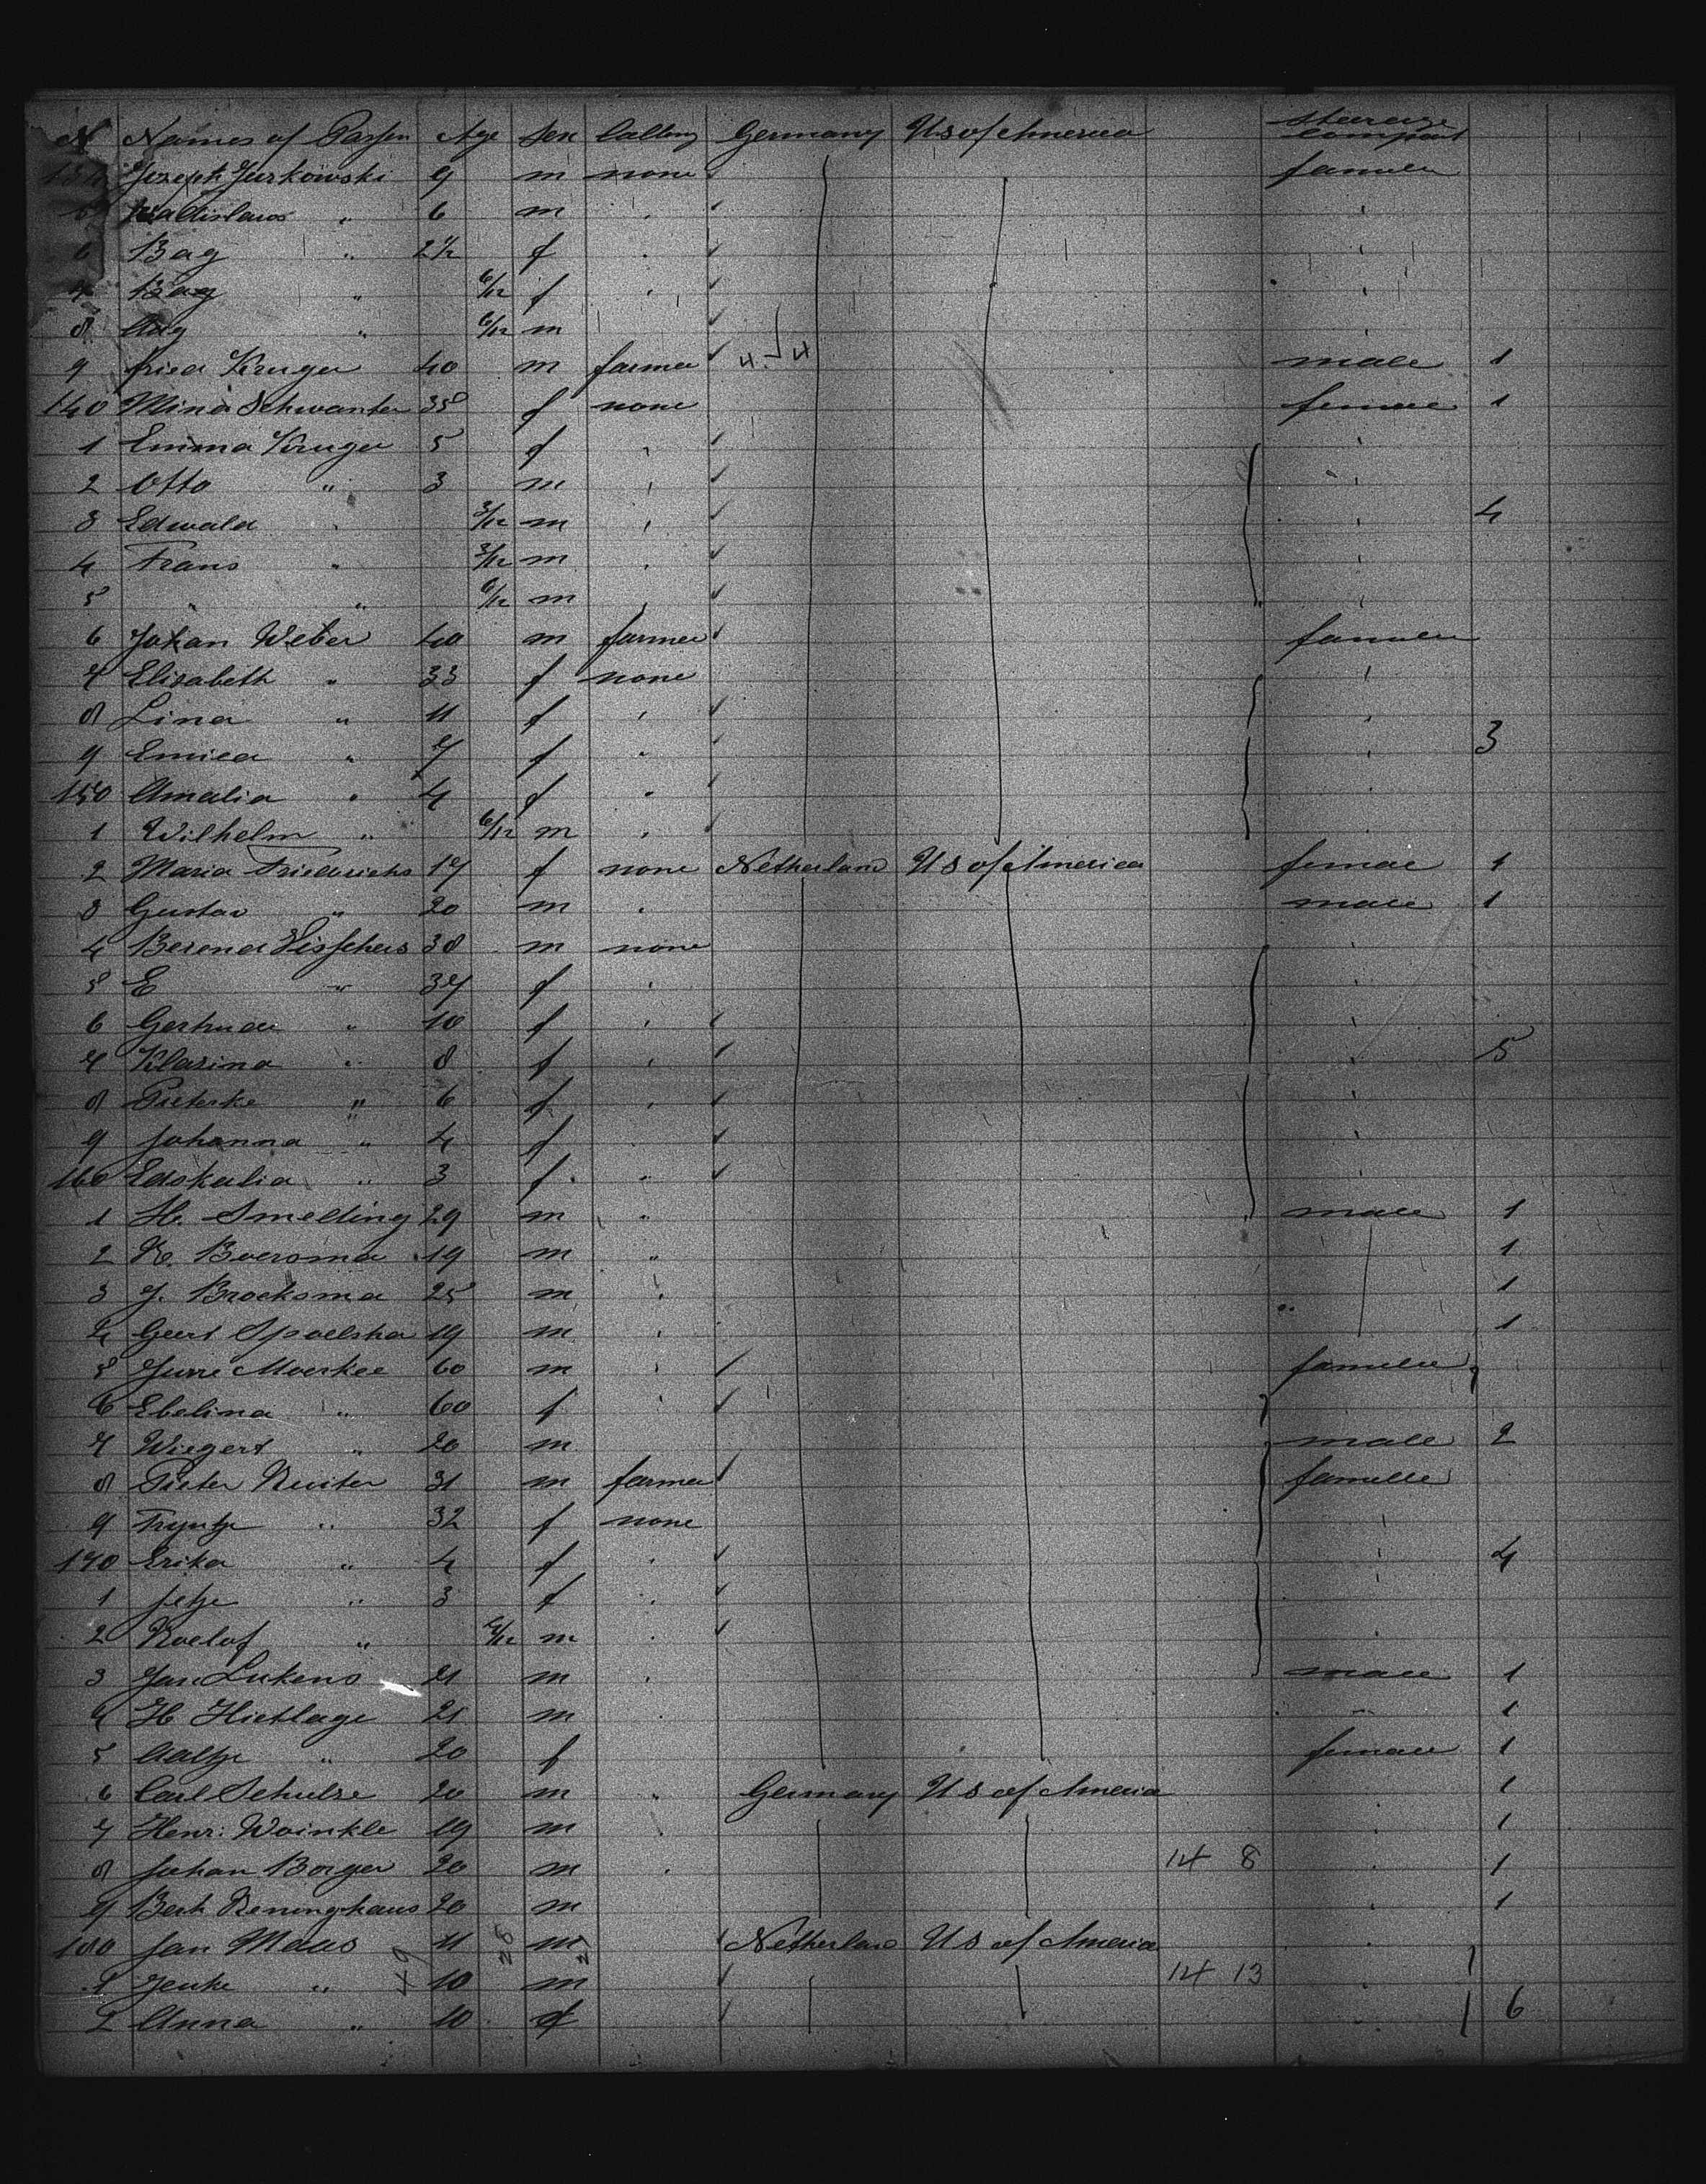 N Names of Passen Age Sex Calling Germany Us of America Steerage Compart
Jozeph Jurkowski 9 m none
Wladislaus " 6 m
6 Bag " 2½ f
7 Bag " 6/12 f
8 " 6/12 m
9 Fried Kruger 40 m farmer 4 4 male 1
140 Mina Schwanter 35 f none female 1
1 Emma Kruger 5 f
2 Otto " 3 m
3 Edwald 3/12 m 4
4 Frans " 3/12 m
5 " " 6/12 m
6 Johan Weber 40 m farmer
7 Elisabeth " 33 f none
8 Lina " 11 f
9 Emilea " 7 f 3
150 Amalia " 4 f
1 Wilhelm " 6/12 m
2 Maria Friedrichs 17 f none Netherland Us of America female 1
3 Gustav " 20 m male 1
4 Berend Visschers 38 m none
5 E " 37 f
6 Gertrude " 10 f
7 Klasina " 8 f 5
8 Pieterke " 6 f
9 Johanna " 4 f
160 " 3 f "
1 H. Smelling 29 m " male 1
2 Boersma 19 m " 1
3 J. Broeksma 25 m 1
4 Geert Spoelstra 19 m 1
5 60 m familie
6 Ebelina " 60 f
7 Wiegert " 20 m male 2
8 Pieter Kuiter 31 m farmer familie
9 Tryntje " 32 f none
170 Erika " 4 f 4
1 Jetje " 3 f
2 Roelof " m
3 Jan Lukens 21 m male 1
4 H Hietlage 21 m 1
5 Aaltje " 20 f female 1
6 Carl Schulze 20 m " Germany Us of America 1
7 Henr: Woinkle 19 m 1
8 Johan Borger 20 m 14 8 1
9 Berh Reninghaus 20 m 1
180 Jan Maas 11 m Netherland Us of America
1 Jenke " 49 10 28 m 14 13
2 Anna " 10 f 6